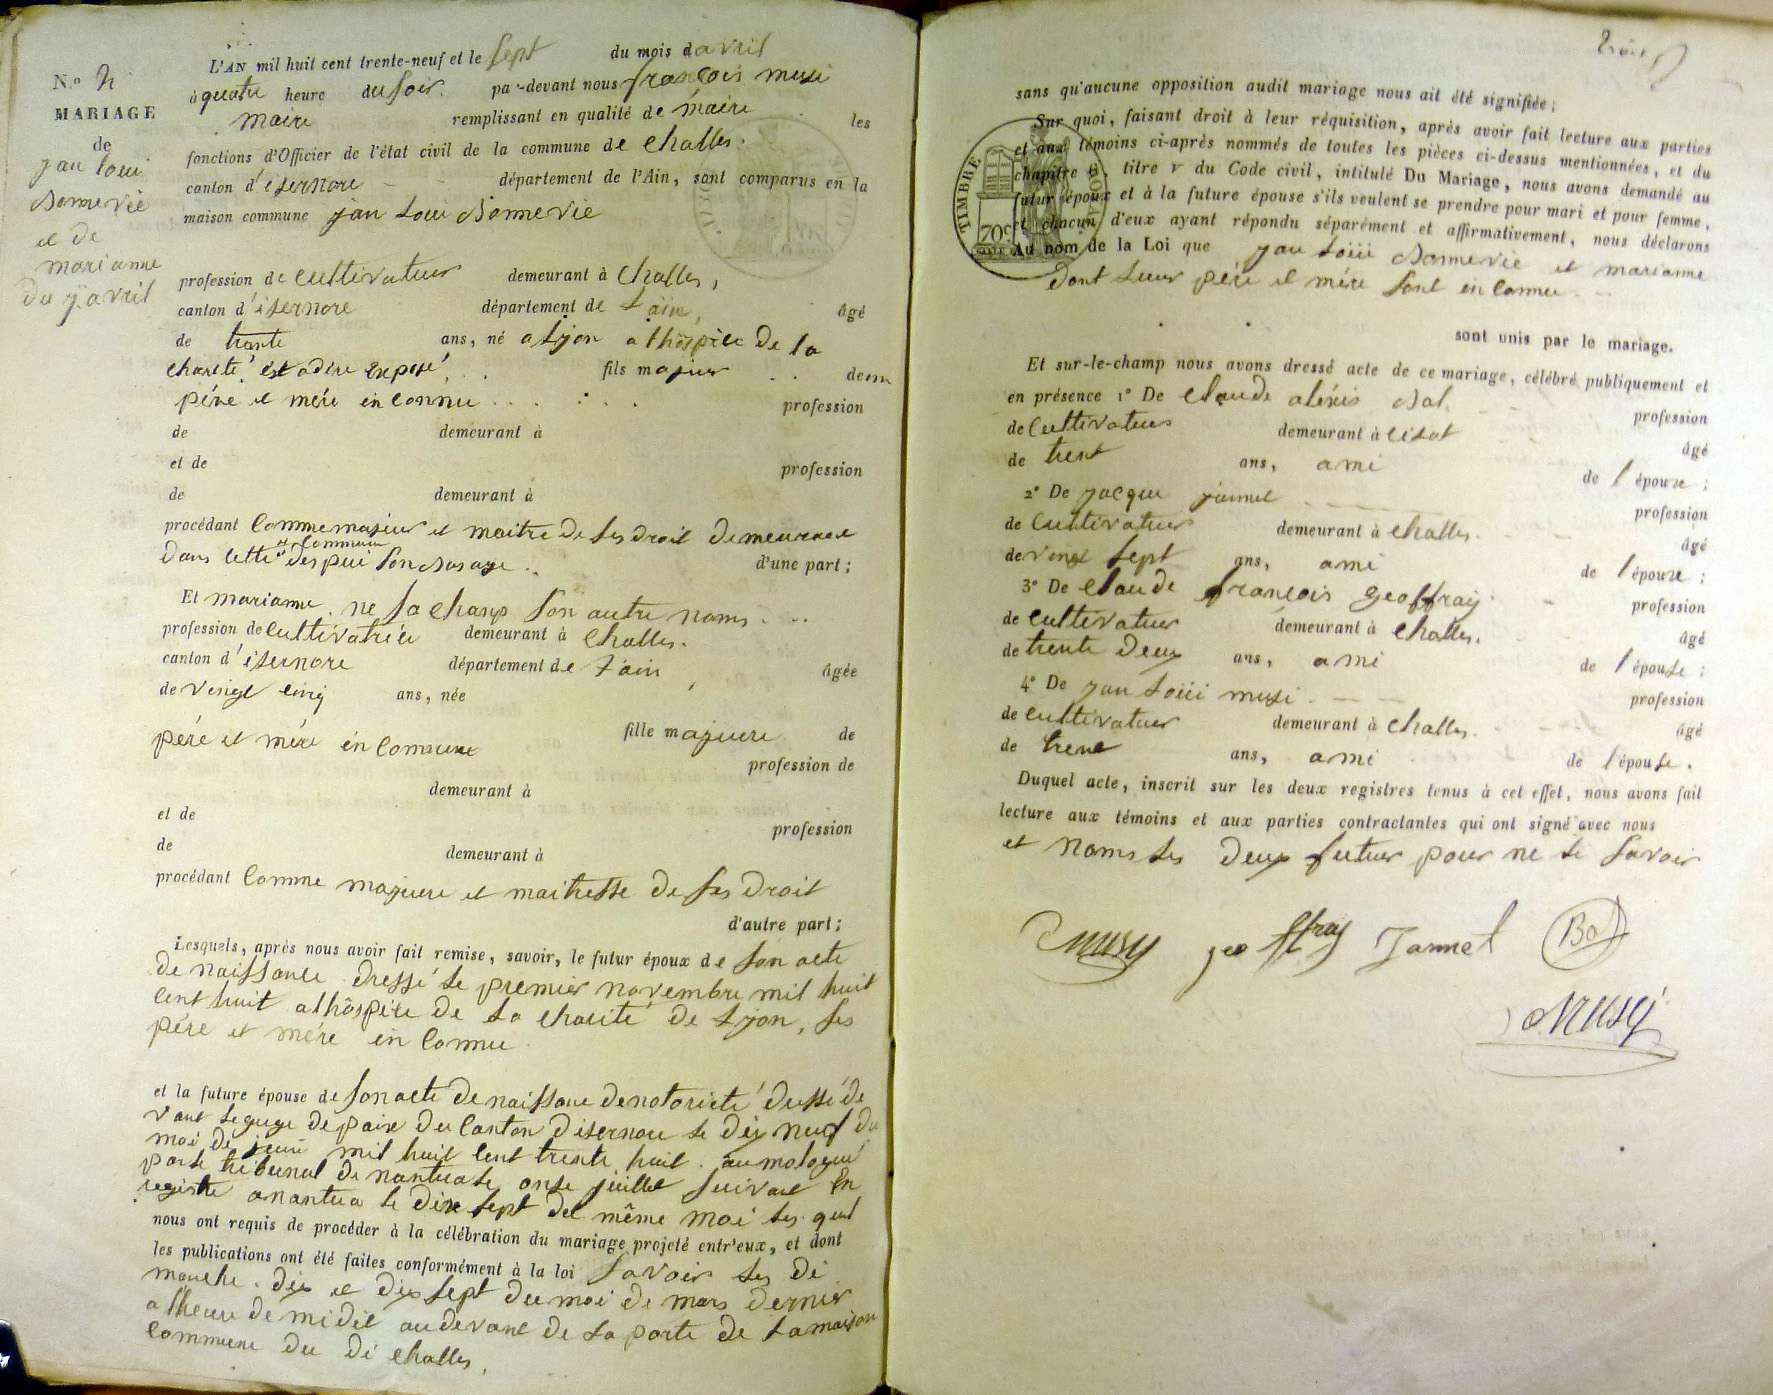 N.º 2
MARIAGE
de
jan loui
Bonnevie
et de
marianne
du 7 avril
L'AN mil huit cent trente-neuf et le sept du mois d avril
à quatre heure du soir. par-devant nous françois musi
maire remplissant en qualité de maire les
fonctions d'Officier de l'état civil de la commune de challes.
canton d'isernore département de l'Ain, sont comparus en la
maison commune jan loui Bonnevie
profession de cultivateur demeurant à challes,
canton d'isernore département de l'ain, âgé
de trante ans, né a lyon a lhôspice de la
charité est adire exposé, fils majeur de son
pére et mére inconnu profession
de demeurant à
et de profession
de demeurant à
procédant comme majeur et maitre de ses droit demeurant
dans cette commune
despui son bas age. d'une part;
Et marianne. ne sachanp son autre noms.
profession de cultivatrice demeurant à challes.
canton d'isernore département de l'ain, âgée
de vingt cinq ans, née
fille majeure de
pére et mére inconnue
profession de
demeurant à
et de profession
de demeurant à
procédant comme majeure et maitresse de ses droit
d'autre part;
Lesquels, après nous avoir fait remise, savoir, le futur époux de son acte
de naissance dressé le premier novembre mil huit
cent huit a lhôspice de la charité de lyon, ses
pére et mére inconnu
et la future épouse de son acte de naissance de notoriété dressé de
vant le guge de paix du canton disernore le dix neuf du
moi de juin mil huit cent trente huit. aumologué
par le tribunal de nantua le onse juillet suivant en
registré a nantua le dixe sept del même moi les quel
nous ont requis de procéder à la célébration du mariage projeté entr'eux, et dont
les publications ont été faites conformément à la loi savoir les di
manche. dix et dix sept du moi de mars dernier
a lheure de midit au devant de la porte de la maison
commune du dé challes.
sans qu'aucune opposition audit mariage nous ait été signifiée;
Sur quoi, faisant droit à leur réquisition, après avoir fait lecture aux parties
et aux témoins ci-après nommés de toutes les pièces ci-dessus mentionnées, et du
chapitre 6, titre v du Code civil, intitulé Du Mariage, nous avons demandé au
futur époux et à la future épouse s'ils veulent se prendre pour mari et pour femme,
et chacun d'eux ayant répondu séparément et affirmativement, nous déclarons
Au nom de la Loi que jan loui Bonnevie et marianne
dont leur pére et mére sont inconnu
TIMBRE
70c
sont unis par le mariage.
Et sur-le-champ nous avons dressé acte de ce mariage, célébré publiquement et
en présence 1º De claude aléxis Bal profession
de cultivateur demeurant à cisat âgé
de trent ans, ami de l'épouse;
2º De jacque jannel profession
de cultivateur demeurant à challes. âgé
de vingt sept ans, ami de l'épouse;
3º De claude françois geoffray profession
de cultivateur demeurant à challes. âgé
de trente deux ans, ami de l'épouse;
4º De jan loui musi profession
de cultivateur demeurant à challes. âgé
de trent ans, ami de l'épouse.
Duquel acte, inscrit sur les deux registres tenus à cet effet, nous avons fait
lecture aux témoins et aux parties contractantes qui ont signé avec nous
et noms les deux futur pour ne le savoir
musy geoffray Jannel Bal
Musy